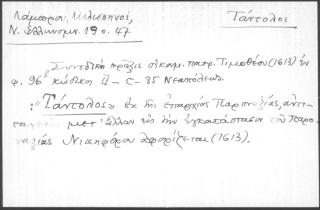 Λάμπρου, Μηλιαρηνοί,
Ν. Ἑλληνομν. 19 σ. 47
Τάντολος
Συνοδικὴ πρᾶξις οἰκουμ. πατρ. Τιμοθέου (1613) ἐν
φ. 96β κώδικος II - C - 35 Νεαπόλεως.
: "Τάντολος" ἐκ τῆς ἐπαρχίας Παροναξίας, ἀντι-
ταχθεὶς μετ' ἄλλων εἰς τὴν ἐγκατάστασιν τοῦ Παρο-
ναξίας Νικηφόρου ἀφορίζεται (1613).